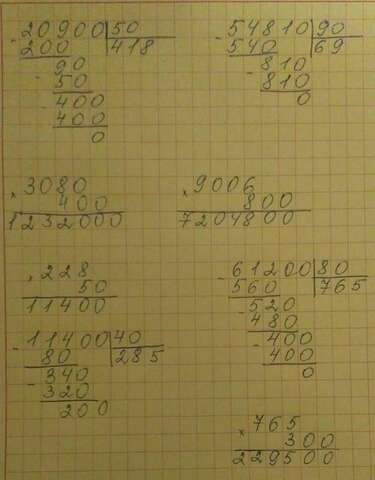 - 20900 | 50
200 418
90
- 50
400
- 400
0
- 54810 | 90
540 69
810
- 810
0
× 3080
400
1232000
× 9006
800
7204800
× 228
50
11400
- 61200 | 80
560 765
- 520
480
- 400
400
0
- 11400 | 40
80 285
- 340
320
200
× 765
300
229500